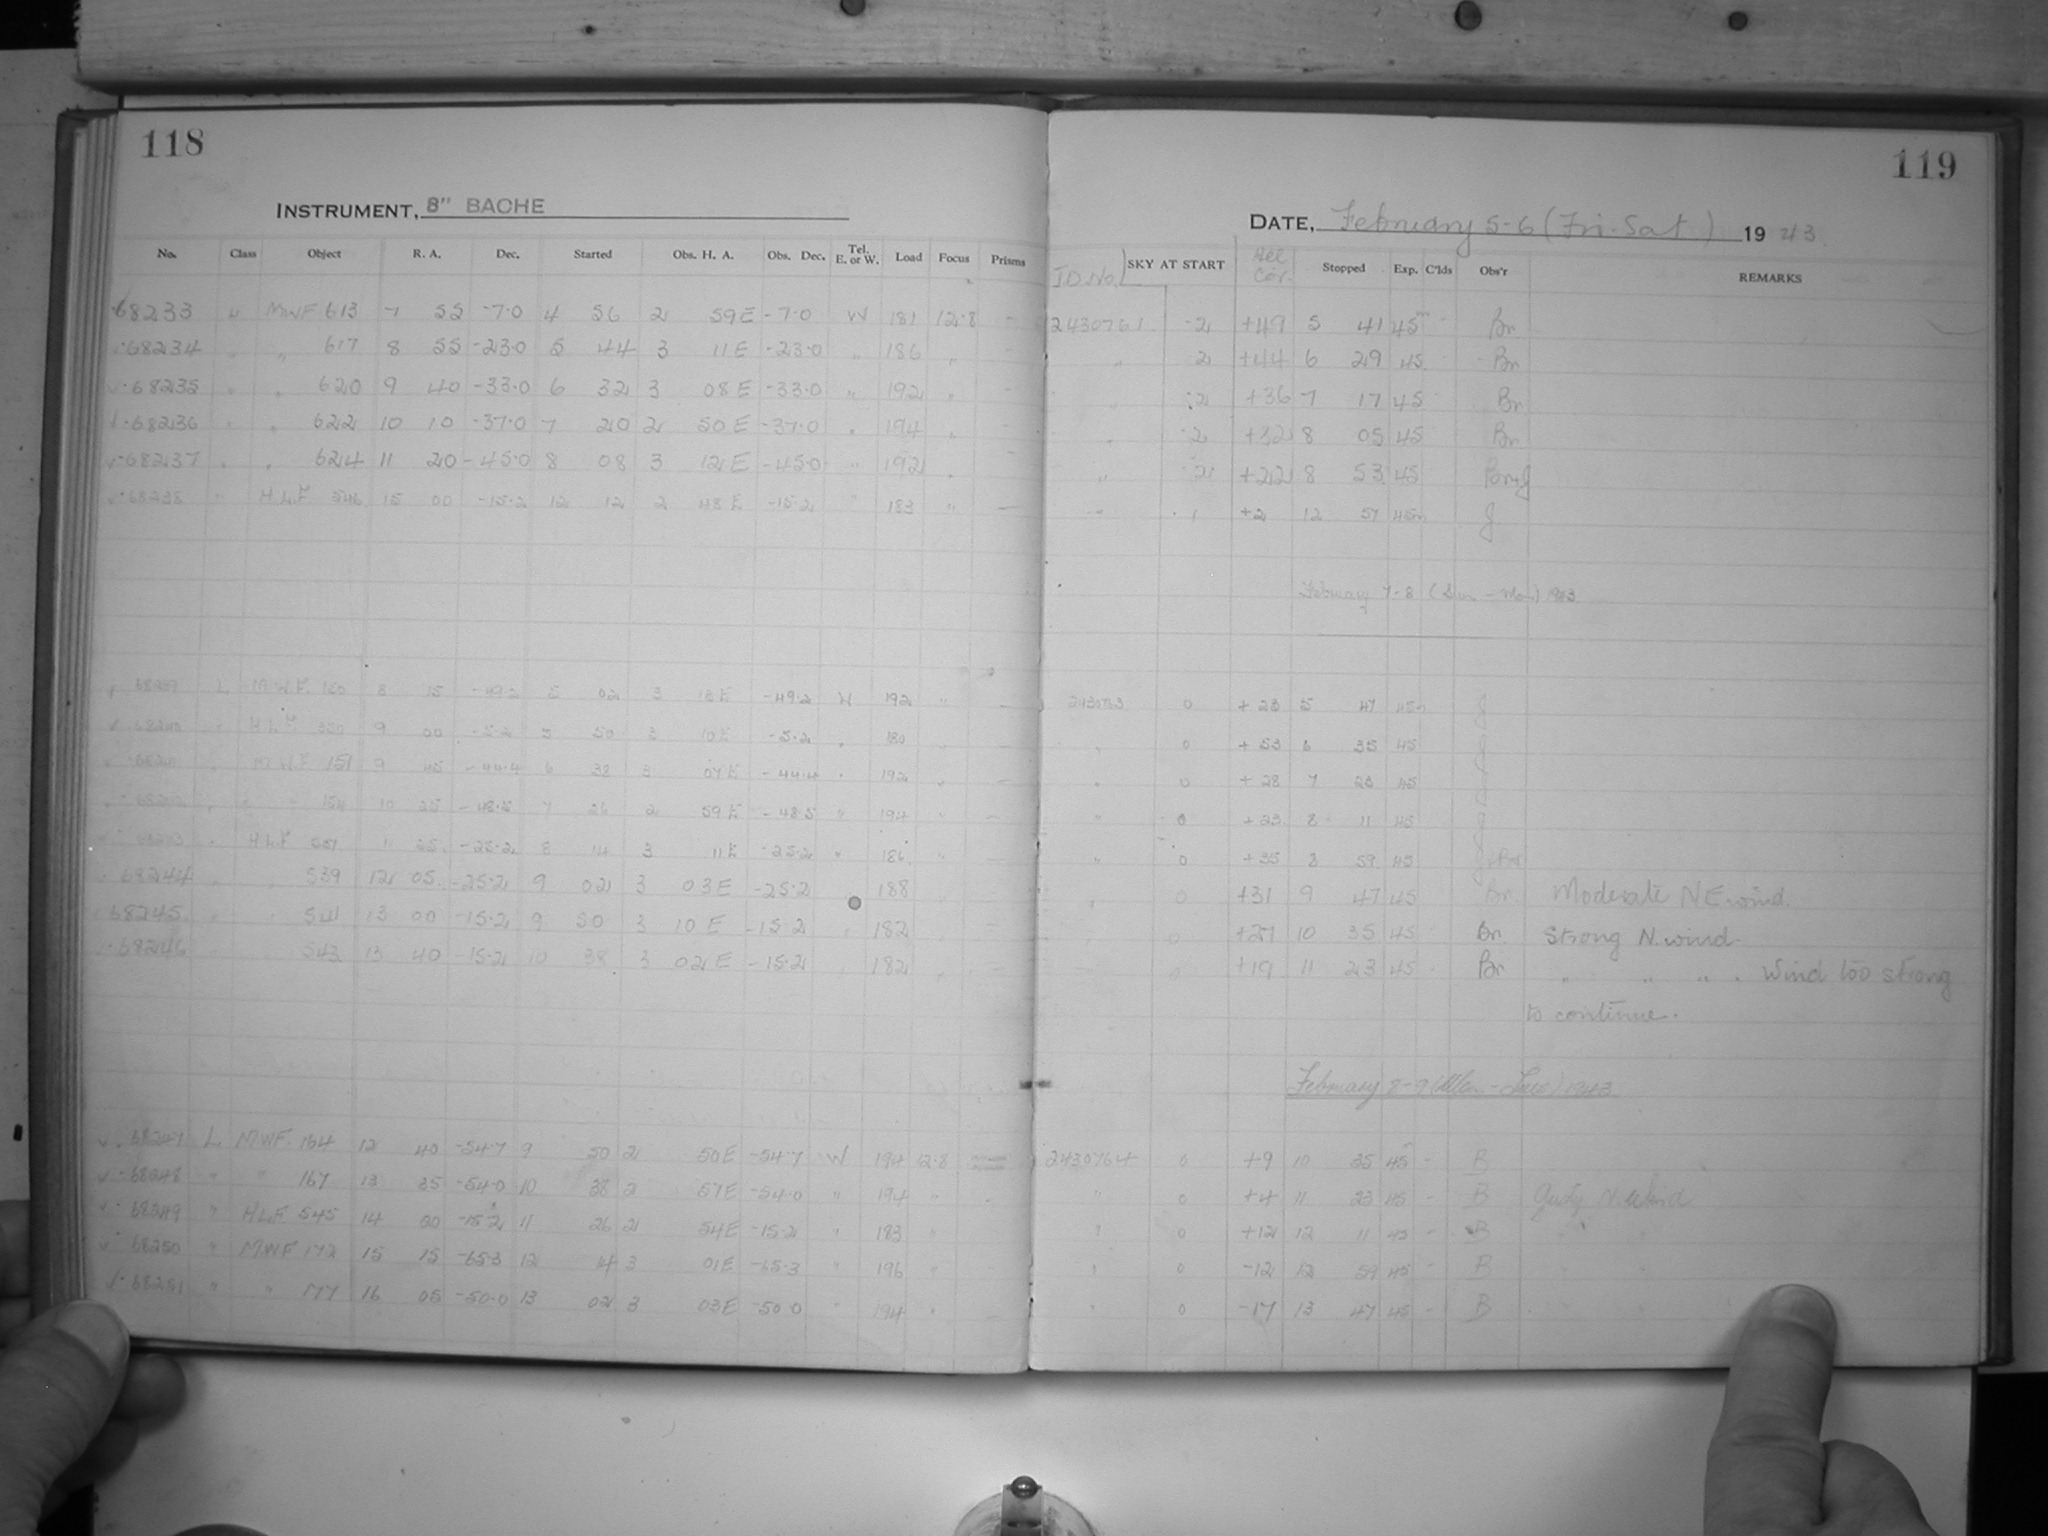 118
INSTRUMENT, 8" BACHE
No. Class Object R. A. Dec. Started Obs. H. A. Obs. Dec. Tel. E. or W. Load Focus Prisms
68233 " MWF 613 7 55 -7.0 4 56 2 59 E -7.0 W 181 12.8 -
68234 " " 617 8 55 -23.0 5 44 3 11 E -23.0 " 186 " -
68235 " " 620 9 40 -33.0 6 32 3 08 E -33.0 " 192 " -
68236 " " 622 10 10 -37.0 7 20 2 50 E -37.0 " 194 " -
68237 " " 624 11 20 -45.0 8 08 3 12 E -45.0 " 192 " -
68238 " HLF 546 15 00 -15.2 12 12 2 48 E -15.2 " 183 " -
68239 L MWF 150 8 15 -49.2 5 02 3 13 E -49.2 W 192 " -
68240 " HLF 9 00 -5.2 5 50 3 10 E -5.2 " 180 " -
68241 " MWF 151 9 45 -44.4 6 38 3 07 E -44.4 " 192 " -
68242 " " 154 10 25 -48.5 7 26 2 59 E -48.5 " 194 " -
68243 " HLF 11 25 -25.2 8 14 3 11 E -25.2 " 186 " -
68244 " " 539 12 05 -25.2 9 02 3 03 E -25.2 188
68245 " " 541 13 00 -15.2 9 50 3 10 E -15.2 " 182
68246 543 13 40 -15.2 10 38 3 02 E -15.2 " 182
68247 L MWF 164 12 40 -54.7 9 50 2 50 E -54.7 W 194 12.8
68248 " " 167 13 35 -54.0 10 38 2 57 E -54.0 " 194 " -
68249 " HLF 545 14 00 -15.2 11 26 2 54 E -15.2 " 183 "
68250 " MWF 172 15 15 -65.3 12 14 3 01 E -65.3 " 196 "
68251 " " 177 16 05 -50.0 13 02 3 03 E -50.0 " 194 " -
119
DATE, February 5-6 (Fri-Sat) 1943
J.D. No. SKY AT START Acc Cor. Stopped Exp. C'lds Obs'r REMARKS
2430761 2 +49 5 41 45m Br
" 2 +44 6 29 45 Br
" 2 +36 7 17 45 Br
" 2 +32 8 05 45 Br
" 2 +22 8 53 45 Br+J
" 1 +2 12 57 45m J
February 7-8 (Sun-Mon) 1943
2430763 0 +23 5 47 45m J
" 0 +53 6 35 45 J
" 0 +28 7 23 45 J
" 0 +23 8 11 45 J
" 0 +35 8 59 45 J+Br
" 0 +31 9 47 45 Br. Moderate NE wind.
0 +27 10 35 45 Br. Strong N. wind
0 +19 11 23 45 Br " " " . Wind too strong
to continue.
February 8-9 (Mon-Tues) 1943
2430764 0 +9 10 35 45 - B
" 0 +4 11 23 45 - B Gusty N. Wind
" 0 +12 12 11 45 - B " "
" 0 -12 12 59 45 - B " "
" 0 -17 13 47 45 - B " "